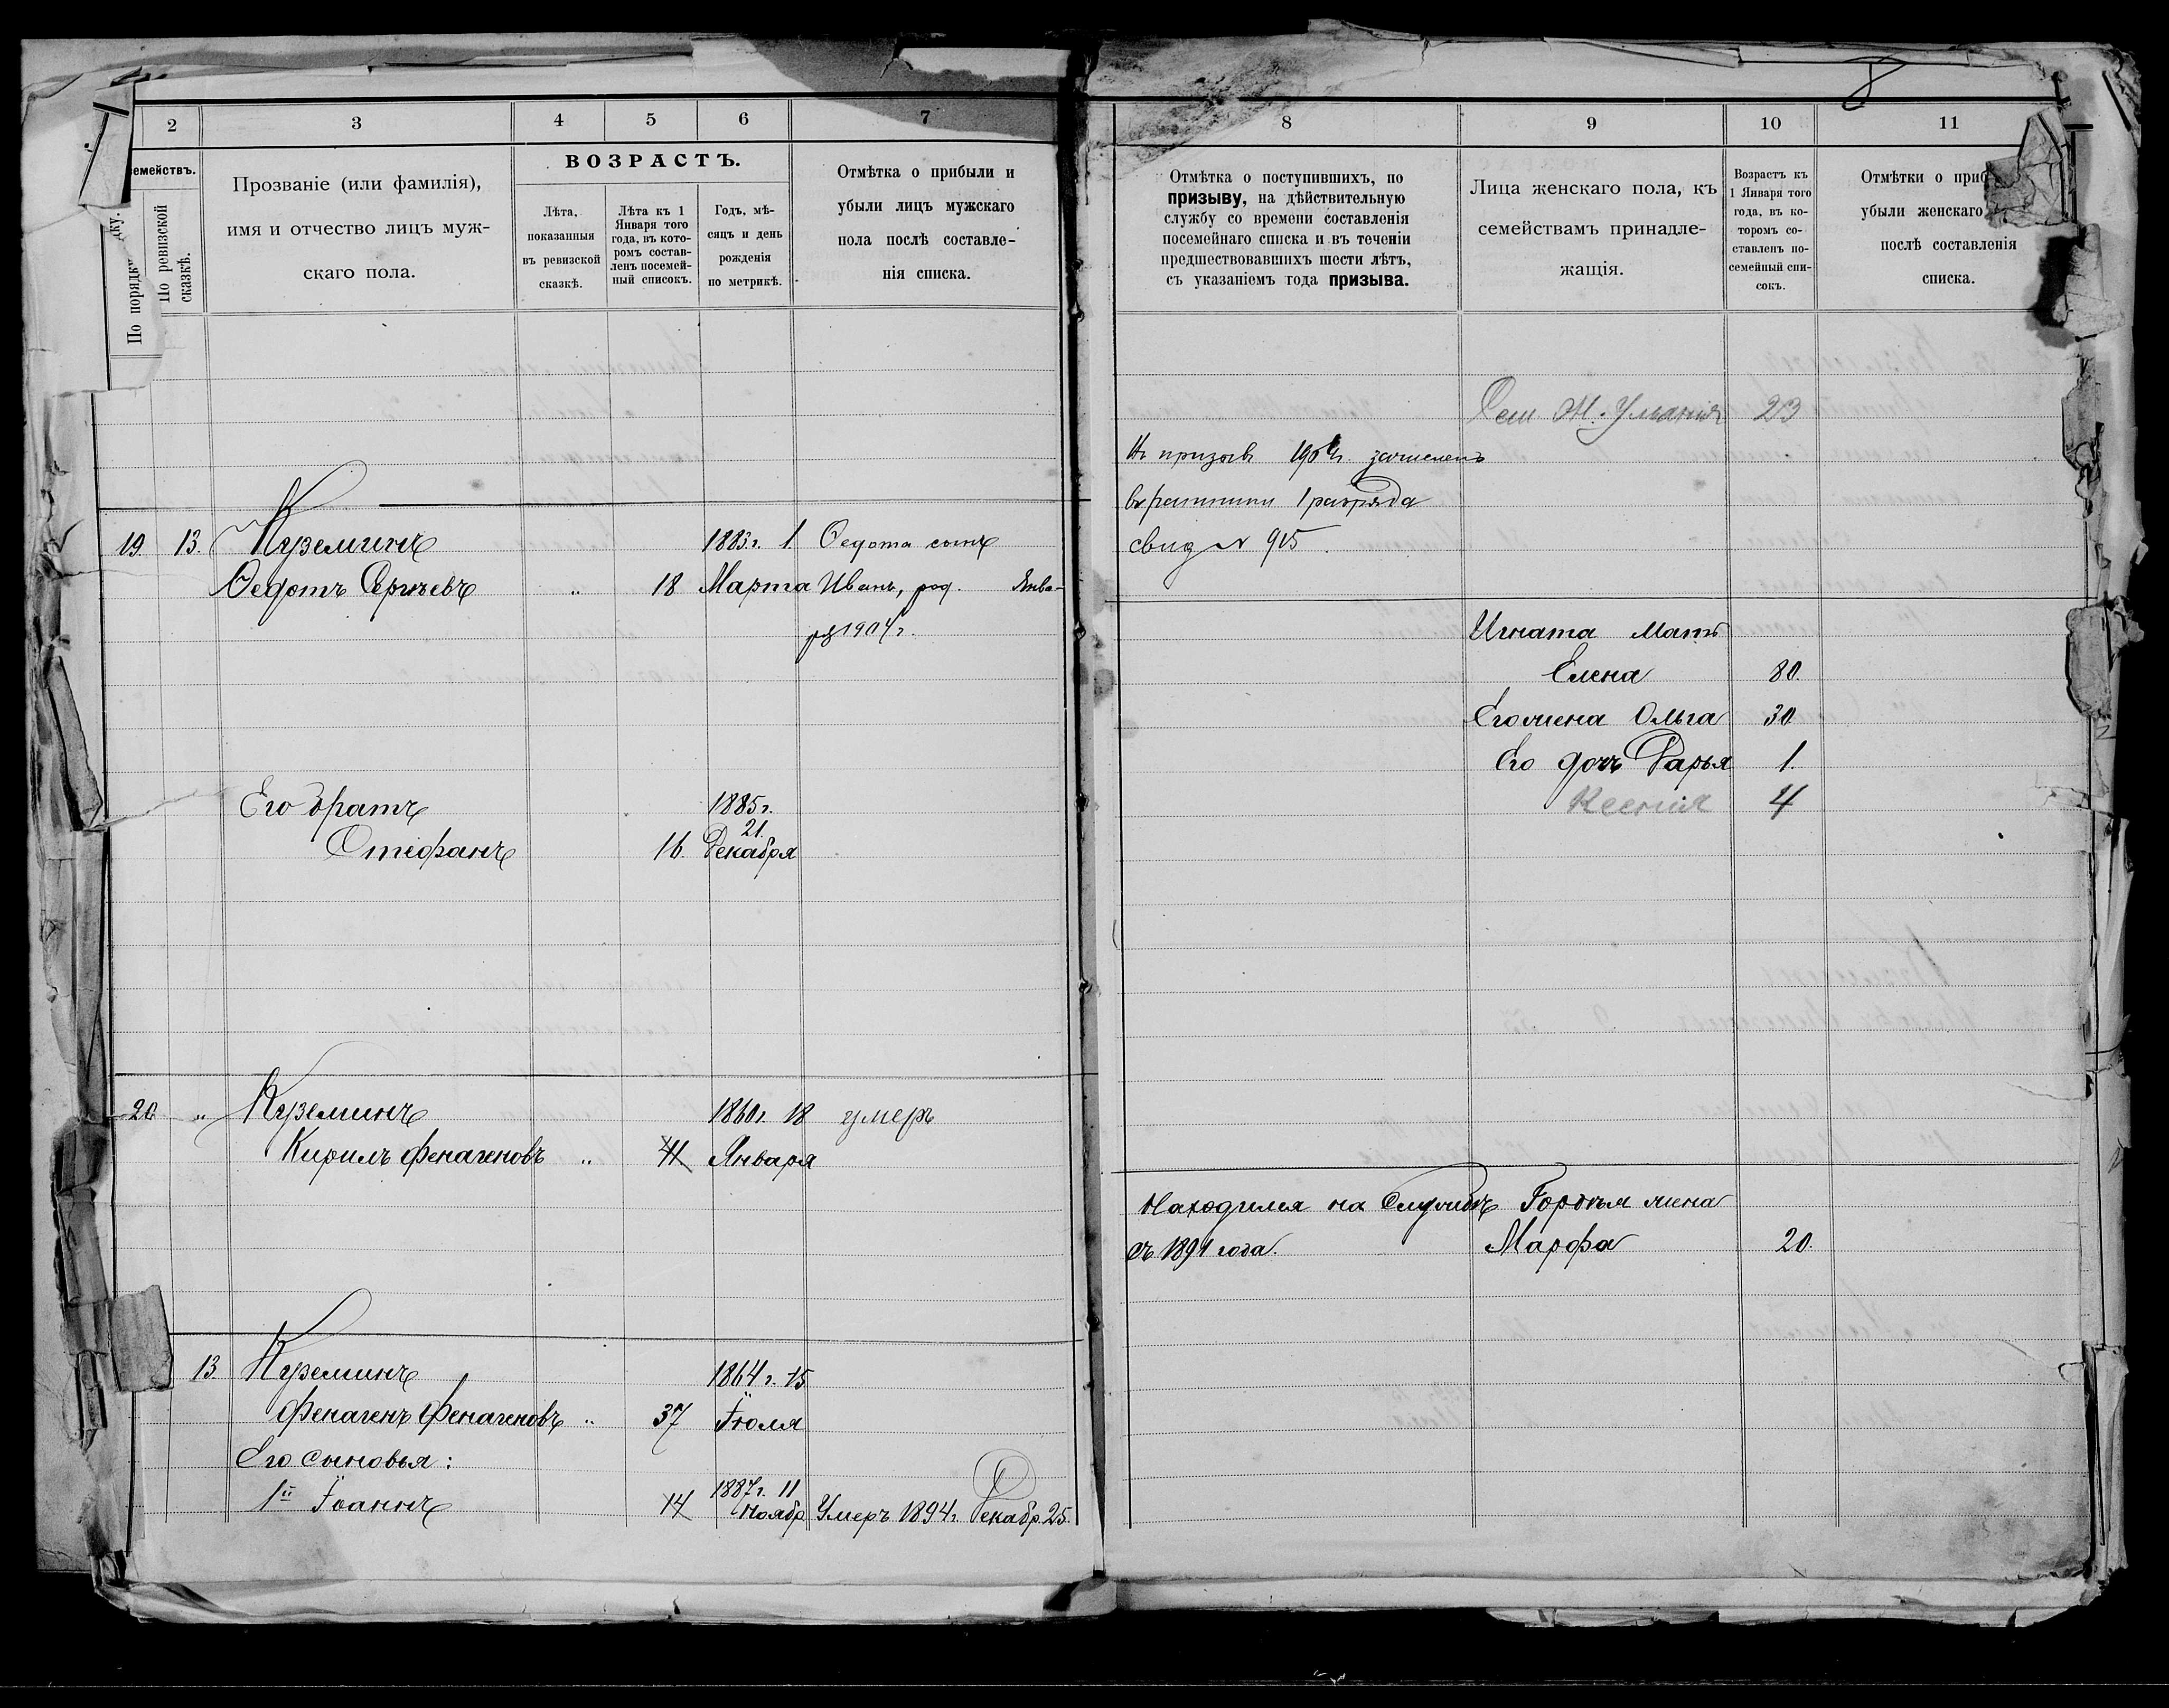 2
3
4
5
6
7
емействъ.
По порядку.
По ревизской сказкѣ.
Прозваніе (или фамилія),
имя и отчество лицъ муж-
скаго пола.
ВОЗРАСТЪ.
Лѣта,
показанныя
въ ревизской
сказкѣ.
Лѣта къ 1
Января того
года, въ кото-
ромъ состав-
ленъ посемей-
ный списокъ.
Годъ, мѣ-
сяцъ и день
рожденія
по метрикѣ.
Отмѣтка о прибыли и
убыли лицъ мужскаго
пола послѣ составле-
нія списка.
19. 13. Куземинъ 1883 г. 1 Ѳедота сынъ
Ѳедотъ Сергѣевъ „ 18 Марта Иванъ, род. Янва-
ря 1904 г.
Его братъ 1885 г.
21.
Стефанъ 16. Декабря
20 „ Куземинъ 1860 г. 18 умеръ
Кирилъ Фенагеновъ „ 41 Января
13 Куземинъ 1864 г. 15
Фенагенъ Фенагеновъ „ 37 Іюля
Его сыновья:
1й Іоаннъ 14 1887 г. 11
Ноябр Умеръ 1894 г. Декабр. 25.
8
8
9
10
11
Отмѣтка о поступившихъ, по
призыву, на дѣйствительную
службу со времени составленія
посемейнаго списка и въ теченіи
предшествовавшихъ шести лѣтъ,
съ указаніемъ года призыва.
Лица женскаго пола, къ
семействамъ принадле-
жащія.
Возрастъ къ
1 Января того
года, въ ко-
торомъ со-
ставленъ по-
семейный спи-
сокъ.
Отмѣтки о приб
убыли женскаго
послѣ составленія
списка.
Ж. Ульянія 23
призывѣ зачисленъ
1 разряда
свид № 915
Игната Мать
Елена 80.
Его жена Ольга 30
Его дочь Дарья 1.
Ксенія 4
Находился на Службѣ Гордѣя жена
съ 1891 года. Марфа 20.